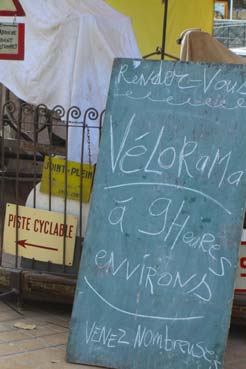 RENDEZ-VOUS
VÉLORAMA
à 9Heures
environs
VENEZ Nombreuses
JOINT-PLEIN
PISTE CYCLABLE